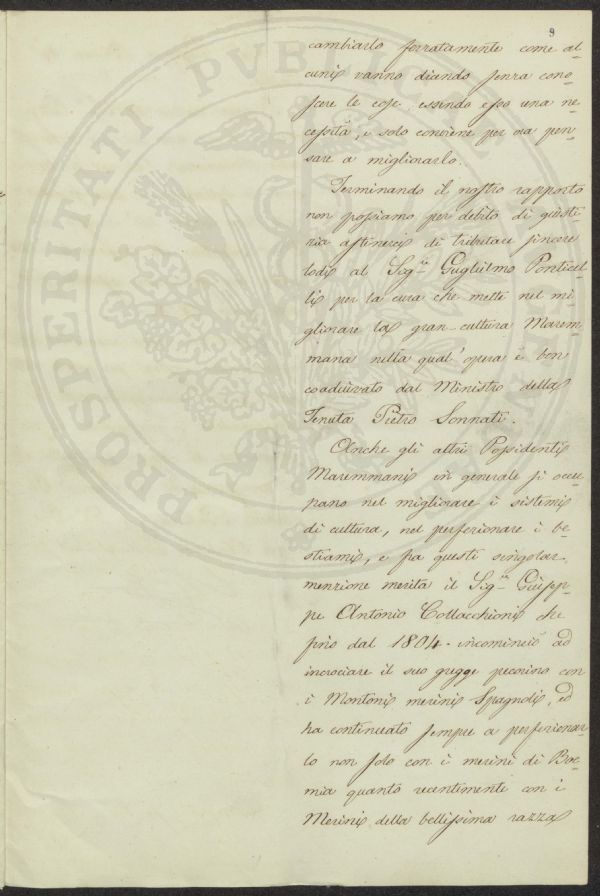 9
cambiarlo forzatamente come al-
cuni vanno diando senza cono-
scere le cose, essendo esso una ne-
cessità, e solo conviene per ora pen-
sare a migliorarlo.
Terminando il nostro rapporto
non possiamo per debito di giusti-
zia astenerci di tributare sincere
lodi al Sigre Guglielmo Ponticel-
li per la cura che mette nel mi-
gliorare la gran-cultura Marem-
mana nella qual'opera è ben
coadiuvato dal Ministro della
Tenuta Pietro Sonnati.
Anche gli altri Possidenti
Maremmani in generale si occu-
pano nel migliorare i sistemi
di cultura, nel perfezionare i be-
stiami, e fra questi singolar
menzione merita il Sigre Giusep-
pe Antonio Collacchioni che
fino dal 1804. incominciò ad
incrociare il suo gregge pecorino con
i Montoni merini Spagnoli, ed
ha continuato sempre a perfezionar-
lo non solo con i merini di Boe-
mia quanto recentemente con i
Merini della bellissima razza
PROSPERITATI PVBLICAE